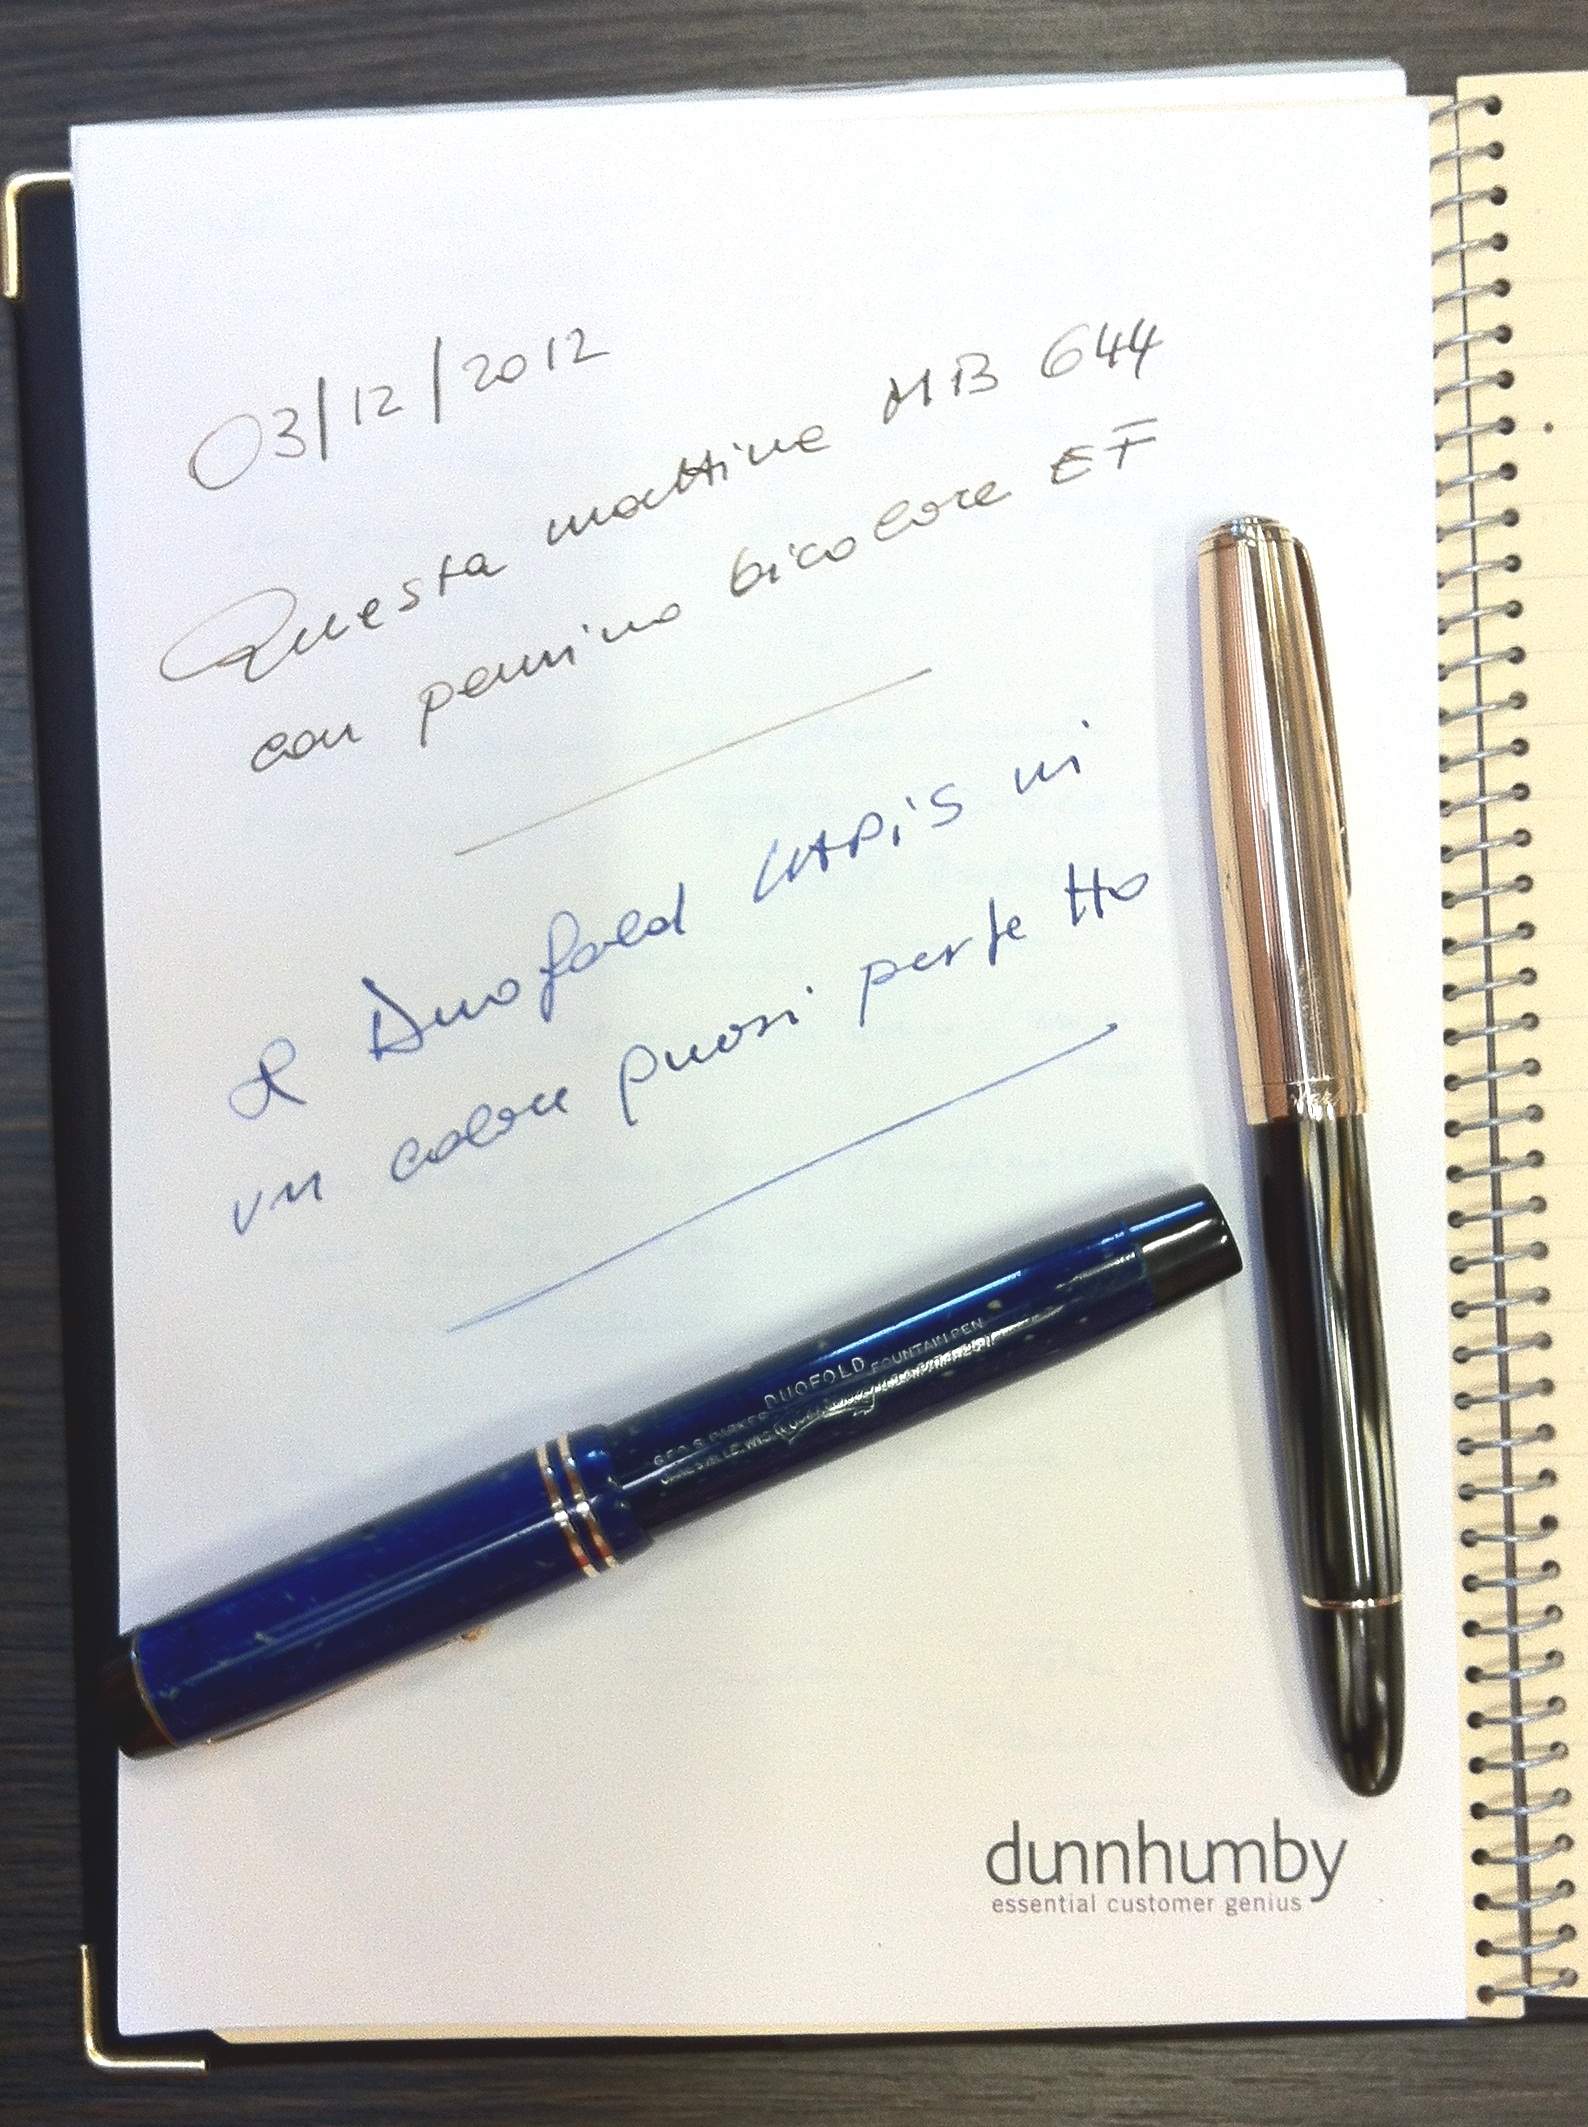 03/12/2012
Questa mattina MB 644
con pennino bicolore EF
& Duofold LAPiS in
un colore quasi perfetto
GEO. S. PARKER DUOFOLD FOUNTAIN PEN
dunnhumby
essential customer genius